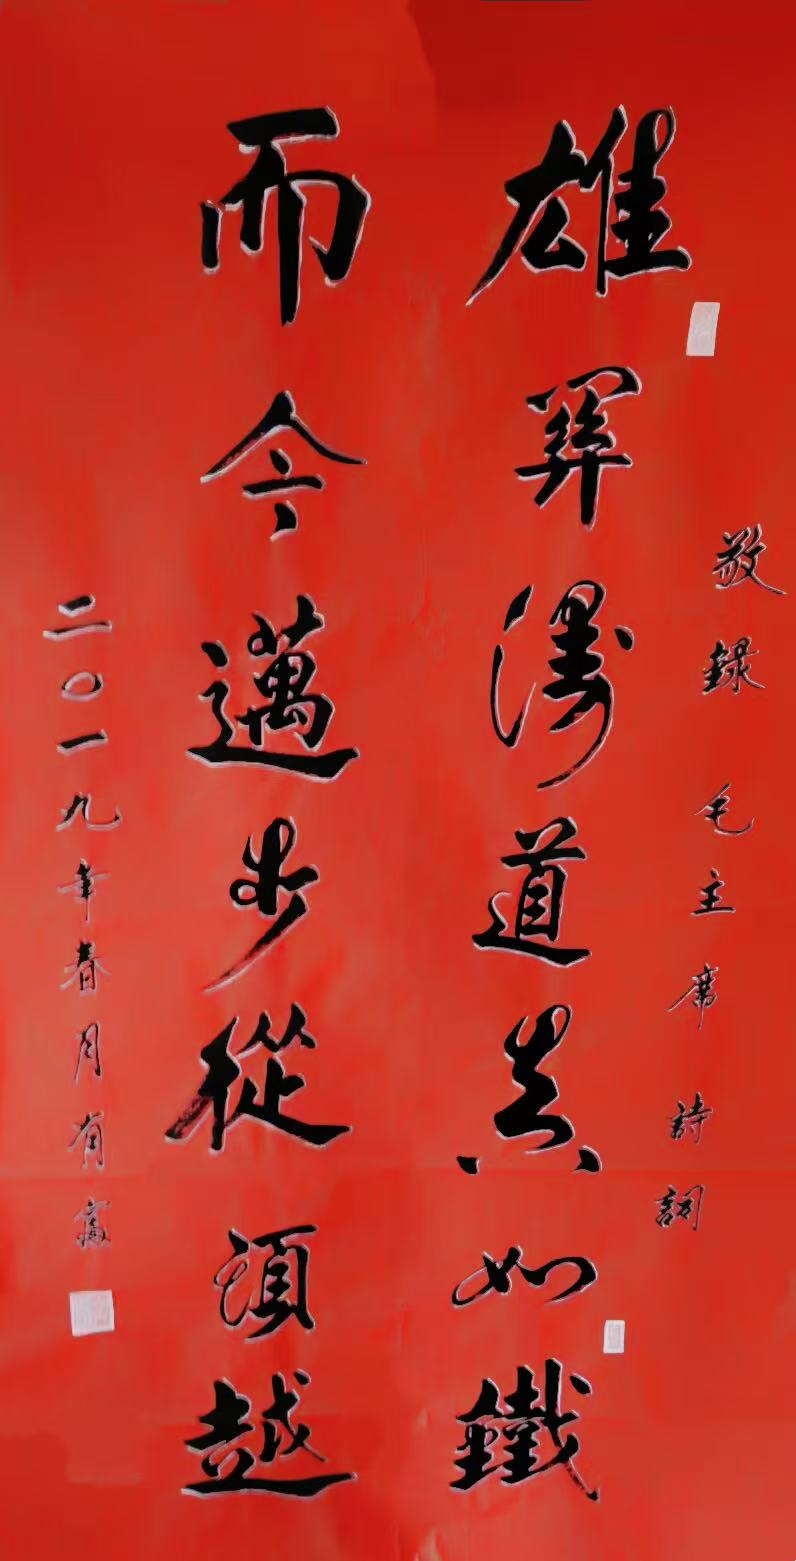 敬錄 毛主席 詩詞
雄關漫道真如鐵
而今邁步從頭越
二〇一九年春月